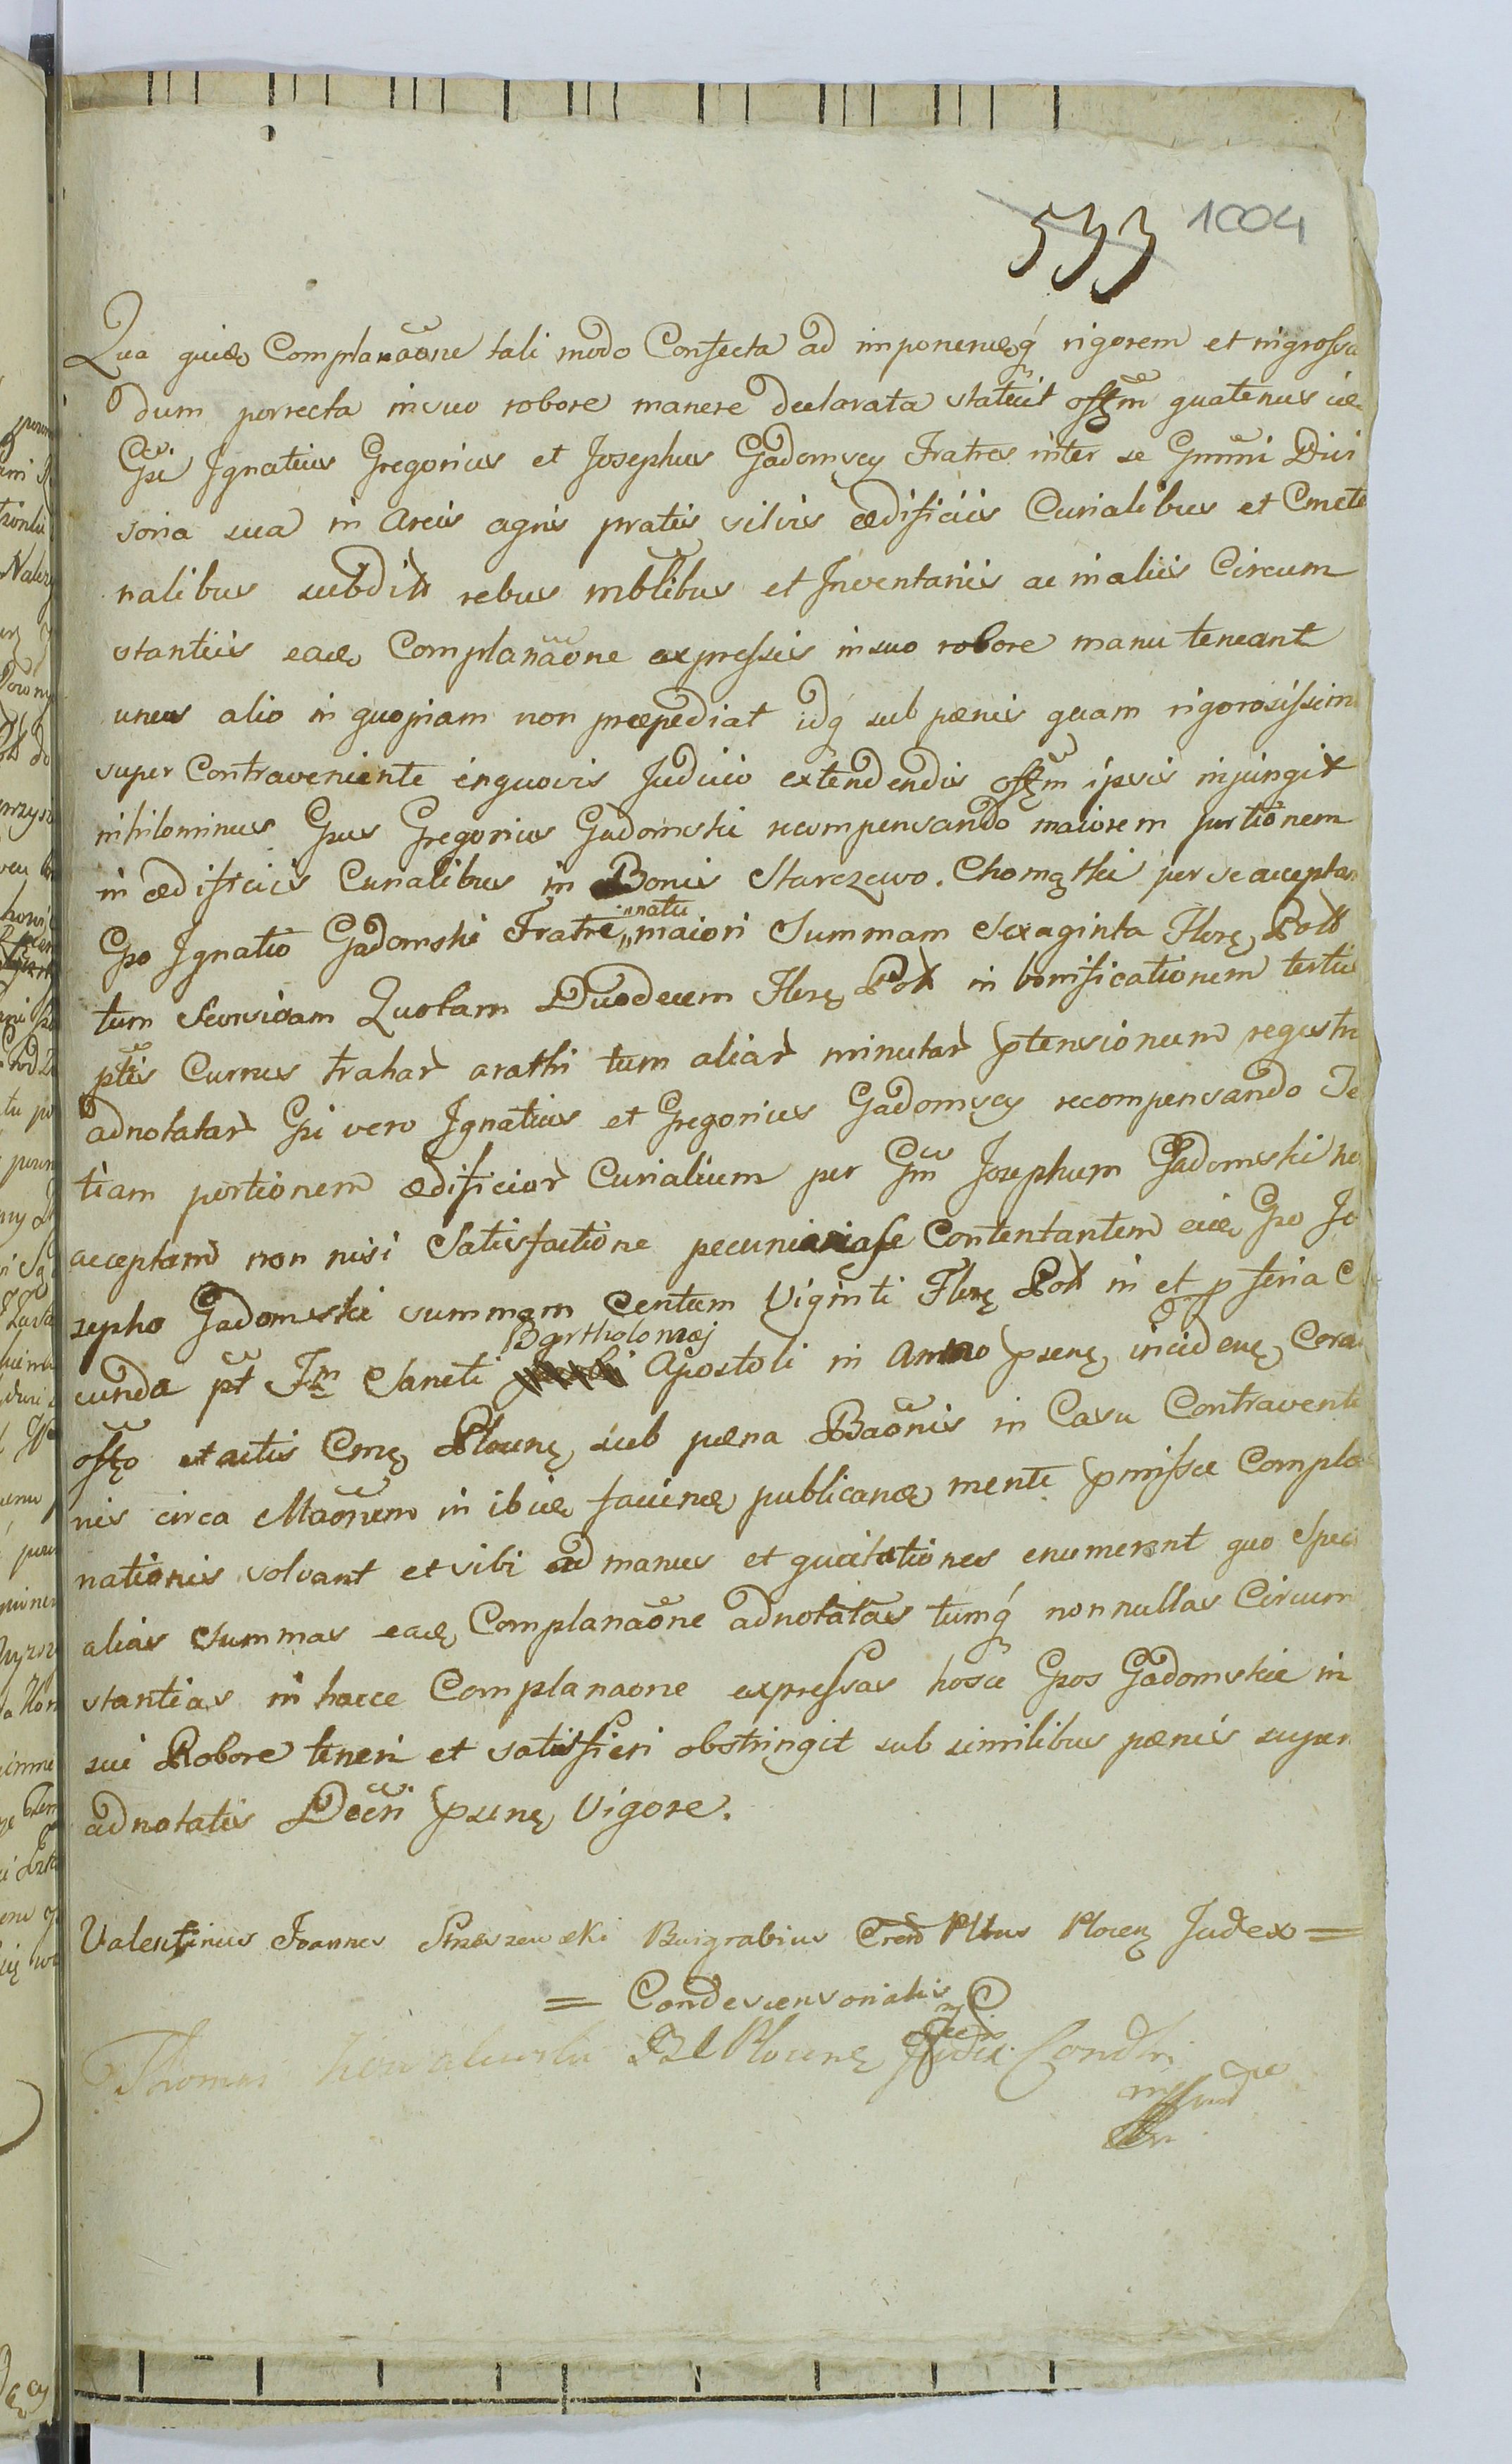 533 1004
Qua quidę Complanaõne tali modo Confecta ad imponendęq́ rigorem et ingrossa
dum porrecta in suo robore manere declarata statuit offm quatenus iidę
Gsi Ignatius Gregorius et Josephus Gadomscy Fratres inter se Gmni Divi
soria sua in Areis agris pratis silvis ædificiis Curialibus et Cmeto
nalibus subditt rebus mblibus et Inventariis ac in aliis Circum
stantiis eadę Complanaõne expressis in suo robore manu teneant
unus alio in quopiam non præpediat idq́ sub pænis quam rigorosissim
super Contraveniente in quovis Judicio extendendis offm ipsis injungit
nihilominus Gsus Gregorius Gadomski recompensando maiorem portionem
in ædificiis Curialibus in Bonis Starczewo Chomątki per se acceptam
Gso Ignatio Gadomski Fratre natu maiori Summam Sexaginta Florę Poll
tum Seorsivam Quotam Duodecem Florę Poll in bonificationem tertiæ
ptis Currus trahar arathri tum aliar minutar ptensionum regestr
adnotatar Gsi vero Ignatius et Gregorius Gadomscy recompensando Ter
tiam portionem ædificior Curialium per Gsm Josephum Gadomski no
acceptam non nisi Satisfactione pecuniaria se Contentantem eidę Gso Jo
sepho Gadomski summam Centum Viginti Florę Poll in et p feria
cunda pt Fm Sancti Bartholomæj Apostoli in Anno psenę incidenę Cora
offo et actis Cmę Plocenę sub pæna Baõnis in Casu Contraventio
nis circa Maõnem in ibidę faciendę publicandę mente pmissæ Compla
nationis solvant et sibi ad manus et quietationes enumerent quo Speci
alias Summas eadę Complanaõne adnotatas tumq́ nonnullas Circum
stantias in hacce Complanaone expressas hosce Gsos Gadomskie in
sui Robore teneri et satisfieri obstringit sub similibus pænis super
adnotatis Decri psenę Vigore.
Valentinus Joannes Burgrabius Plocenę Judex =
= Condescensorialis
Thomas Kowalewski Plocenę Condlis